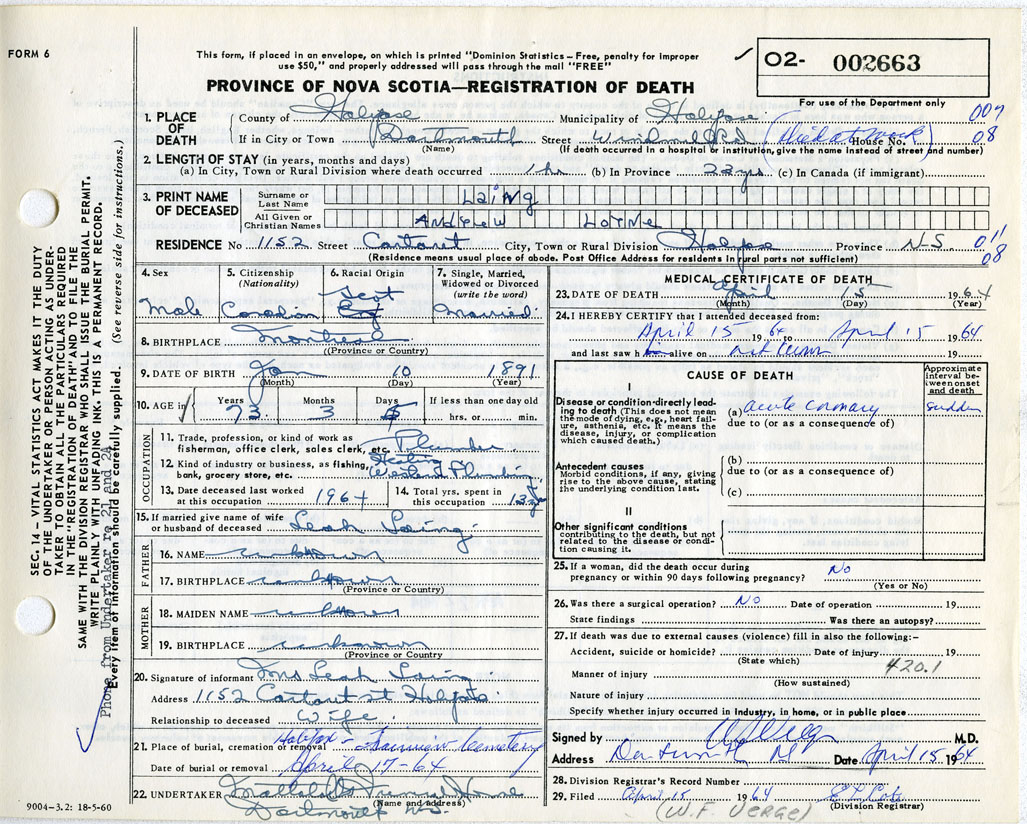 FORM 6
This form, if placed in an envelope, on which is printed "Dominion Statistics – Free, penalty for improper
use $50," and properly addressed will pass through the mail "FREE"
PROVINCE OF NOVA SCOTIA—REGISTRATION OF DEATH
O2- 002663
For use of the Department only
1. PLACE OF DEATH
County of Halifax Municipality of Halifax 007
If in City or Town Dartmouth Street Windmill Rd (Died at Work) House No. 08
(Name) (If death occurred in a hospital or institution, give the name instead of street and number)
2. LENGTH OF STAY (in years, months and days)
(a) In City, Town or Rural Division where death occurred 1 hr (b) In Province 22 yrs (c) In Canada (if immigrant)
3. PRINT NAME OF DECEASED
Surname or Last Name Laing
All Given or Christian Names Andrew Lorne
RESIDENCE No 1152 Street Cartaret City, Town or Rural Division Halifax Province N-S 011
08
(Residence means usual place of abode. Post Office Address for residents in rural parts not sufficient)
4. Sex Male
5. Citizenship (Nationality) Canadian
6. Racial Origin Scot
7. Single, Married, Widowed or Divorced (write the word) Married
8. BIRTHPLACE Montreal
(Province or Country)
9. DATE OF BIRTH Jan 10 1891
(Month) (Day) (Year)
10. AGE in Years 73 Months 3 Days 5 If less than one day old
hrs. or min.
OCCUPATION
11. Trade, profession, or kind of work as
fisherman, office clerk, sales clerk, etc. Plumber
12. Kind of industry or business, as fishing,
bank, grocery store, etc. Plumbing
13. Date deceased last worked
at this occupation 1964
14. Total yrs. spent in
this occupation 13
15. If married give name of wife
or husband of deceased Leah Laing
FATHER
16. NAME unknown
17. BIRTHPLACE unknown
(Province or Country)
MOTHER
18. MAIDEN NAME unknown
19. BIRTHPLACE unknown
(Province or Country
20. Signature of informant Mrs Leah Laing
Address 1152 Cartaret st Halifax
Relationship to deceased Wife
21. Place of burial, cremation or removal Halifax – Fairview Cemetery
Date of burial or removal April 17-64
22. UNDERTAKER Funeral Home
(Name and address)
Dartmouth N.S.
9004-3.2: 18-5-60
MEDICAL CERTIFICATE OF DEATH
23. DATE OF DEATH April 15 1964
(Month) (Day) (Year)
24. I HEREBY CERTIFY that I attended deceased from:
April 15 64 to April 15 1964
and last saw h alive on 19
CAUSE OF DEATH
Approximate interval between onset and death
I
Disease or condition directly leading to death (This does not mean the mode of dying, e.g., heart failure, asthenia, etc. It means the disease, injury, or complication which caused death.)
(a) Acute coronary sudden
due to (or as a consequence of)
Antecedent causes
Morbid conditions, if any, giving rise to the above cause, stating the underlying condition last.
(b)
due to (or as a consequence of)
(c)
II
Other significant conditions
contributing to the death, but not related to the disease or condition causing it.
25. If a woman, did the death occur during
pregnancy or within 90 days following pregnancy? No
(Yes or No)
26. Was there a surgical operation? No Date of operation 19
State findings Was there an autopsy?
27. If death was due to external causes (violence) fill in also the following:–
Accident, suicide or homicide? Date of injury 19
(State which) 420.1
Manner of injury
(How sustained)
Nature of injury
Specify whether injury occurred in Industry, in home, or in public place
Signed by M.D.
Address Dartmouth NS Date April 15 1964
28. Division Registrar's Record Number
29. Filed April 15 1964
(Division Registrar)
(W.F. VERGE)
SEC. 14 – VITAL STATISTICS ACT MAKES IT THE DUTY
OF THE UNDERTAKER OR PERSON ACTING AS UNDER-
TAKER TO OBTAIN ALL THE PARTICULARS REQUIRED
IN THE "REGISTRATION OF DEATH" AND TO FILE THE
SAME WITH THE DIVISION REGISTRAR WHO SHALL ISSUE THE BURIAL PERMIT.
WRITE PLAINLY WITH UNFADING INK. THIS IS A PERMANENT RECORD.
Every item of information should be carefully supplied. (See reverse side for instructions.)
Phone from Undertaker re 21 and 24